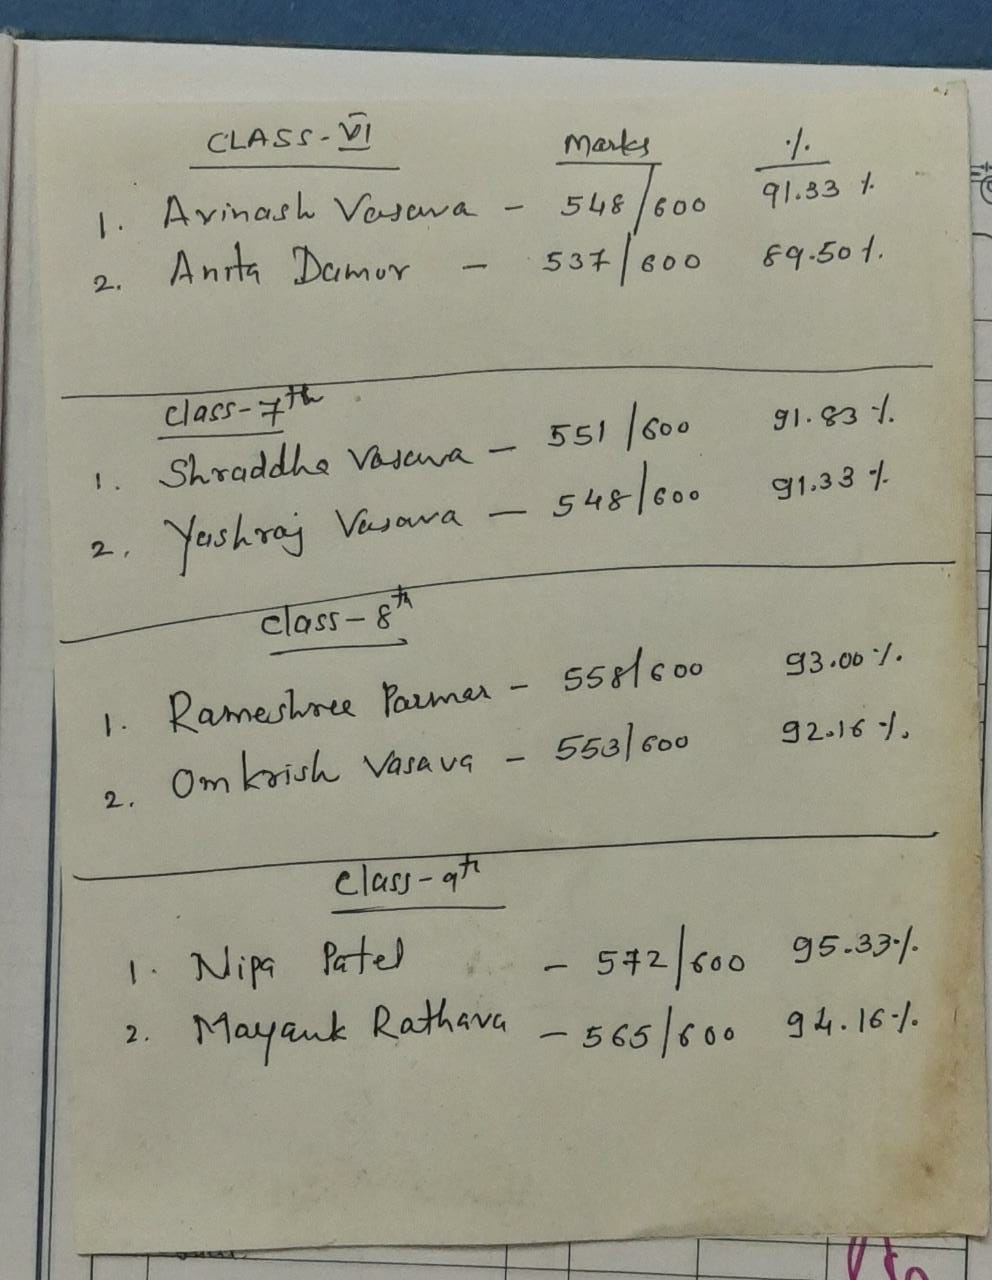 CLASS-VI Marks %
1. Avinash Vasava - 548/600 91.33 %
2. Anita Damor - 537/600 89.50%.
Class-7th
1. Shraddha Vasava - 551/600 91.83 %.
2. Yashraj Vasava - 548/600 91.33 %
Class-8th
1. Rameshree Parmar - 558/600 93.00 %.
2. Omkrish Vasava - 553/600 92.16 %.
Class-9th
1. Nipa Patel - 572/600 95.33%.
2. Mayank Rathava - 565/600 94.16%.